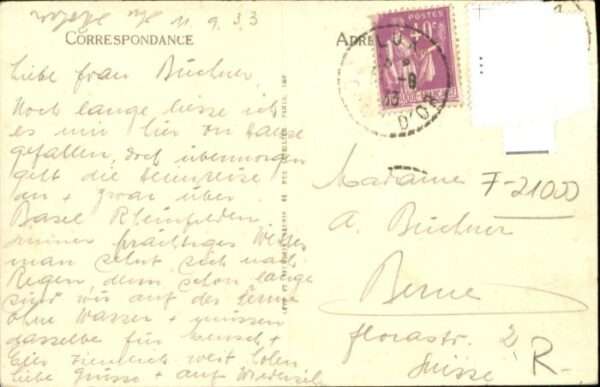 11.9.33
CORRESPONDANCE
Liebe Frau Büchner,
Noch lange liesse ich
es mir hier on Dauer
gefallen, doch übermorgen
geht die Heimreise
an + zwar über
Basel Rheinfelden
prächtiges Wetter
man sehnt sich nach
Regen, denn schon lange
sind wir auf der Ferme
ohne Wasser + müssen
dasselbe für Mensch +
ziemlich weit holen
liebe Grüsse + auf Wiederseh
POSTES
D'OR
Madame
F-21000
A. Büchner
Berne
Florastr. 2
Suisse
R.